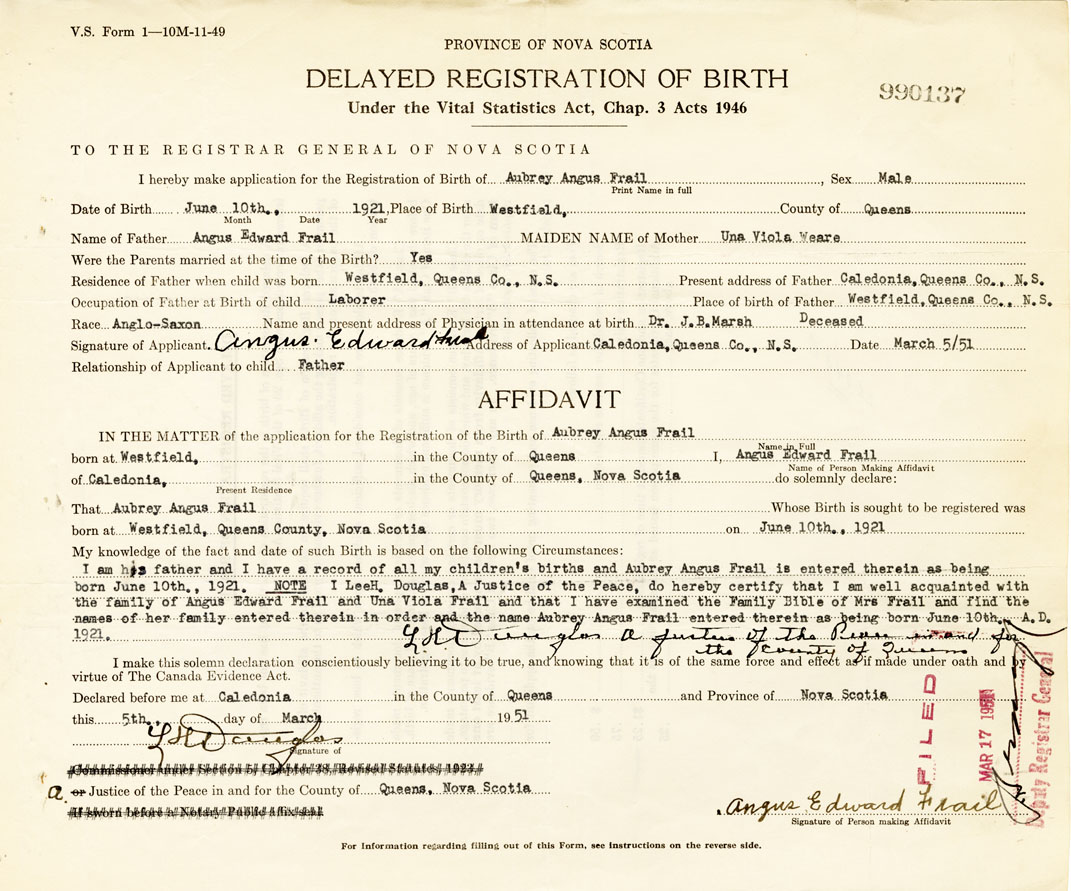 V.S. Form 1—10M-11-49
PROVINCE OF NOVA SCOTIA
DELAYED REGISTRATION OF BIRTH
990137
Under the Vital Statistics Act, Chap. 3 Acts 1946
TO THE REGISTRAR GENERAL OF NOVA SCOTIA
I hereby make application for the Registration of Birth of Aubrey Angus Frail, Sex Male
Print Name in full
Date of Birth June 10th., 1921, Place of Birth Westfield, County of Queens
Month Date Year
Name of Father Angus Edward Frail MAIDEN NAME of Mother Una Viola Weare
Were the Parents married at the time of the Birth? Yes
Residence of Father when child was born Westfield, Queens Co., N.S. Present address of Father Caledonia, Queens Co., N.S.
Occupation of Father at Birth of child Laborer Place of birth of Father Westfield, Queens Co., N.S.
Race Anglo-Saxon Name and present address of Physician in attendance at birth Dr. J.B.Marsh Deceased
Signature of Applicant. Angus. Edward Frail Address of Applicant Caledonia, Queens Co., N.S. Date March 5/51
Relationship of Applicant to child Father
AFFIDAVIT
IN THE MATTER of the application for the Registration of the Birth of Aubrey Angus Frail
Name in Full
born at Westfield, in the County of Queens I, Angus Edward Frail
Name of Person Making Affidavit
of Caledonia, in the County of Queens, Nova Scotia do solemnly declare:
Present Residence
That Aubrey Angus Frail Whose Birth is sought to be registered was
born at Westfield, Queens County, Nova Scotia on June 10th., 1921
My knowledge of the fact and date of such Birth is based on the following Circumstances:
I am his father and I have a record of all my children's births and Aubrey Angus Frail is entered therein as being
born June 10th., 1921. NOTE I LeeH. Douglas, A Justice of the Peace, do hereby certify that I am well acquainted with
the family of Angus Edward Frail and Una Viola Frail and that I have examined the Family Bible of Mrs Frail and find the
names of her family entered therein in order and the name Aubrey Angus Frail entered therein as being born June 10th., A.D.
1921. L H Douglas a justice of the Peace in and for
the County of Queens
I make this solemn declaration conscientiously believing it to be true, and knowing that it is of the same force and effect as if made under oath and by
virtue of The Canada Evidence Act.
Declared before me at Caledonia in the County of Queens and Province of Nova Scotia
this 5th. day of March 1951
L H Douglas
Signature of
Commissioner under Section 5, Chapter 38, Revised Statutes, 1923
a. or Justice of the Peace in and for the County of Queens, Nova Scotia
If sworn before a Notary Public affix seal
FILED
MAR 17 1951
Deputy Registrar General
Angus Edward Frail
Signature of Person making Affidavit
For Information regarding filling out of this Form, see instructions on the reverse side.